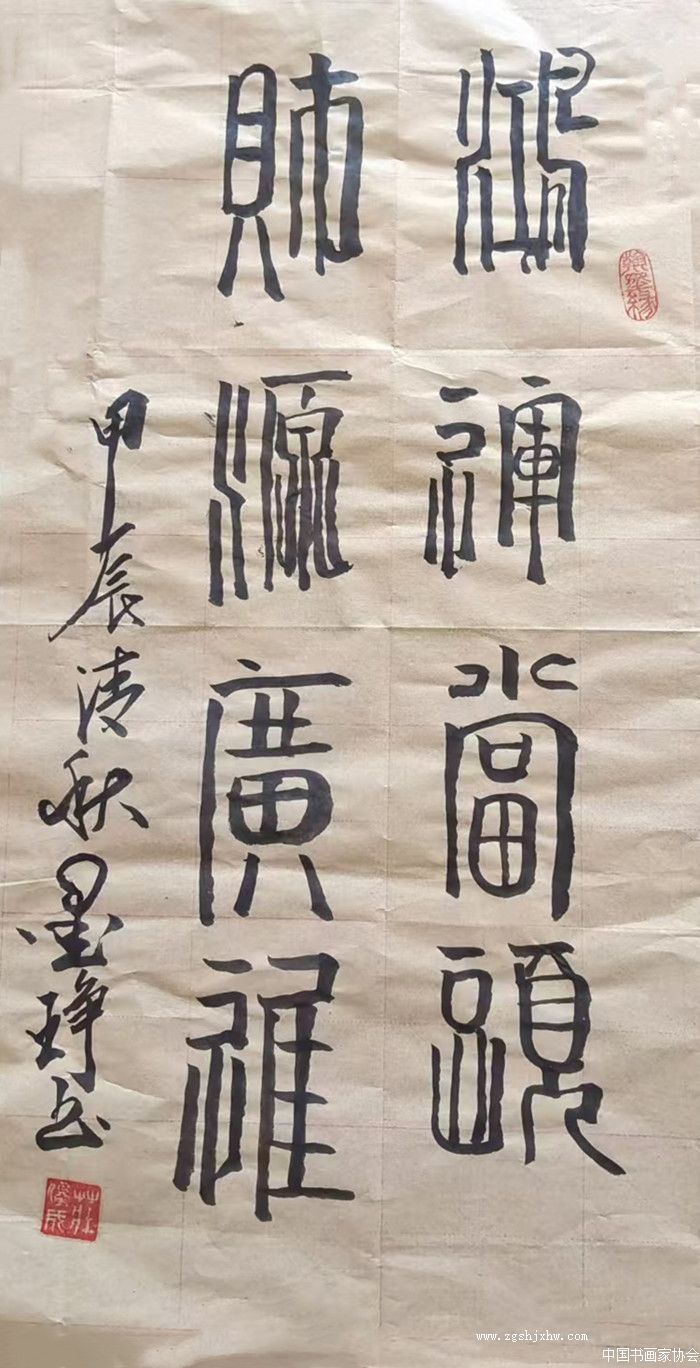 鴻運當頭
財源廣進
甲辰清秋墨琤书
www.zgshjxhw.com
中国书画家协会